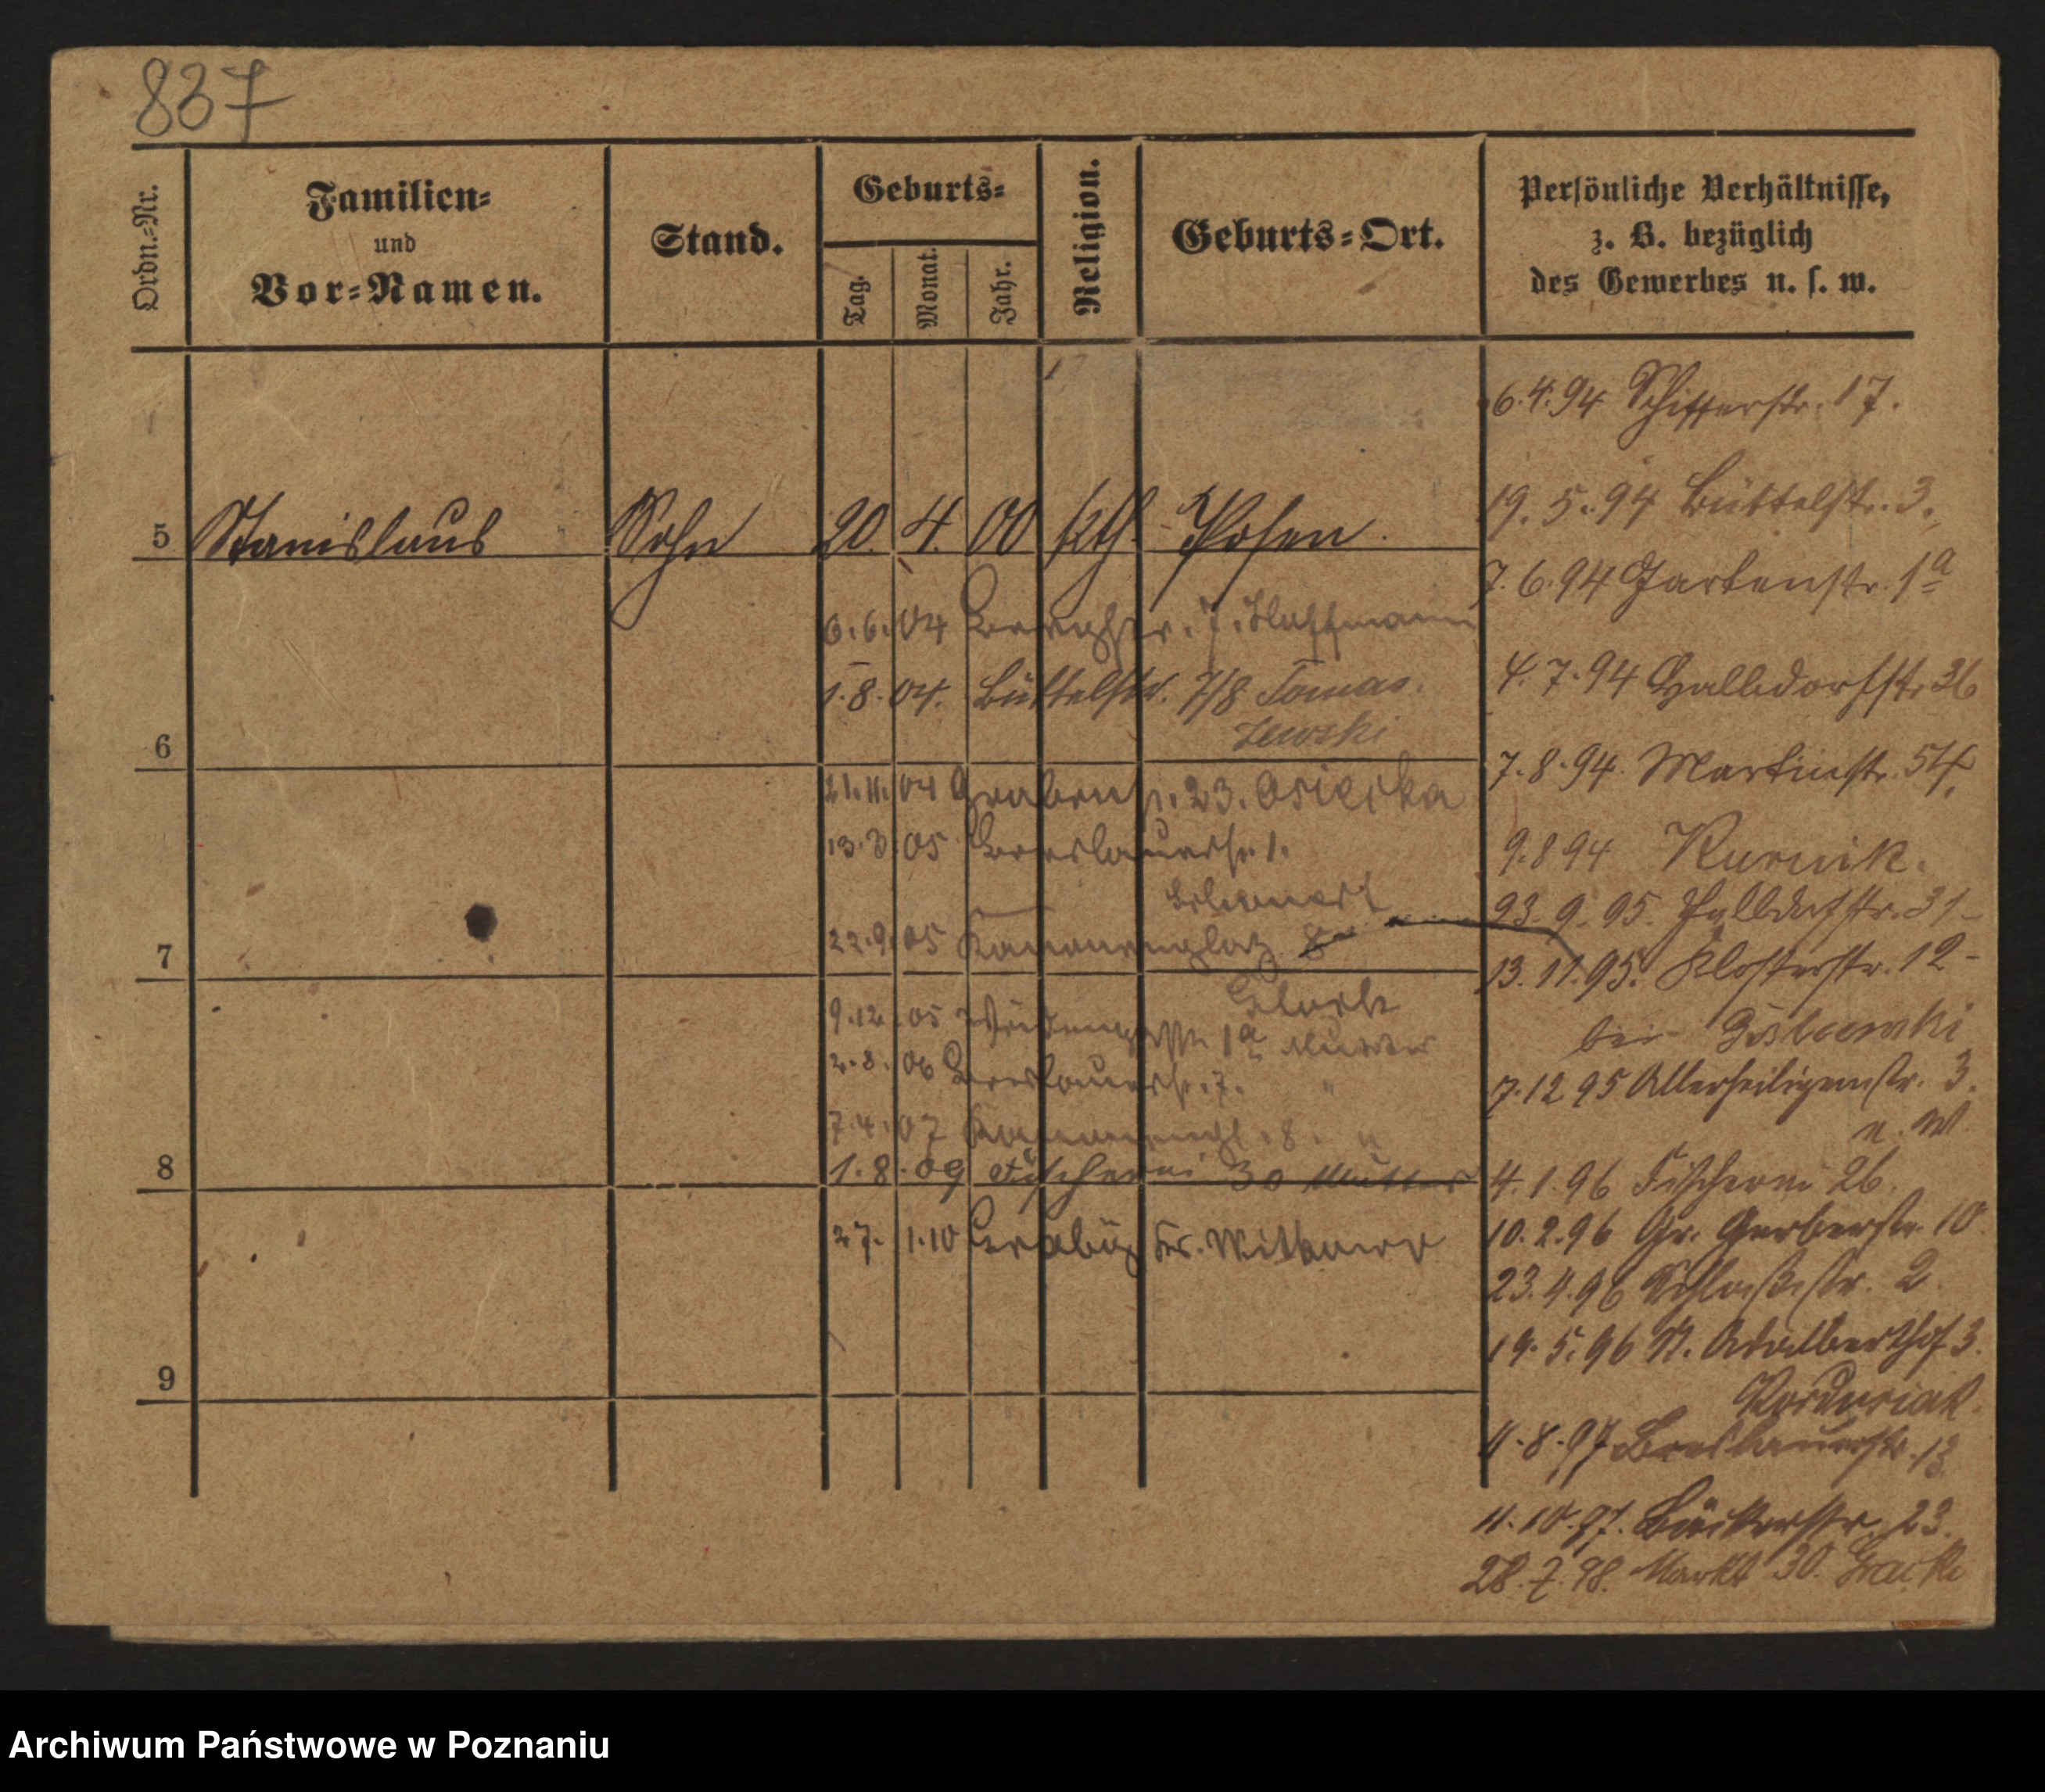 837
Ordn.=Nr.
Familien=
und
Vor=Namen.
Stand.
Geburts=
Tag.
Monat.
Jahr.
Religion.
Geburts=Ort.
Persönliche Verhältnisse,
z. B. bezüglich
des Gewerbes u. s. w.
5 Stanislaus Sohn 20. 4. 00 kth. Posen.
6.6.04 7. Hoffmann
1.8.04. Büttelstr. 7/8 Tomas.
zewski
6
21.11.04 Grabenstr. 23. Osiecka
13.3.05 Breslauerstr. 1.
22.9.05 Kanonenplatz 8
7
9.12.05 1a Mutter
2.8.06 Breslauerstr. 7. "
7.4.07 Kanonenpl. 8. "
1.8.09 Fischerei 30 Mutter
8
27. 1.10
9
6.4.94 Schifferstr. 17.
19.5.94 Büttelstr. 3.
7.6.94 Gartenstr. 1a
4.7.94 Halbdorfstr. 36
7.8.94. Martinstr. 54.
9.8 94 Kurnik.
23.9.95. Halbdorfstr. 31
13.11.95. Klosterstr. 12
bei
7.12 95 Allerheiligenstr. 3.
n. W.
4.1.96 Fischerei 26.
10.2.96 Gr. Gerberstr. 10
23.4.96 Schloßstr. 2.
19.5.96 St. Adalberthof 3.
4.8.97 Breslauerstr. 13
11.10.97. Bäckerstr. 23.
28.7.98. Markt 30.
Archiwum Państwowe w Poznaniu